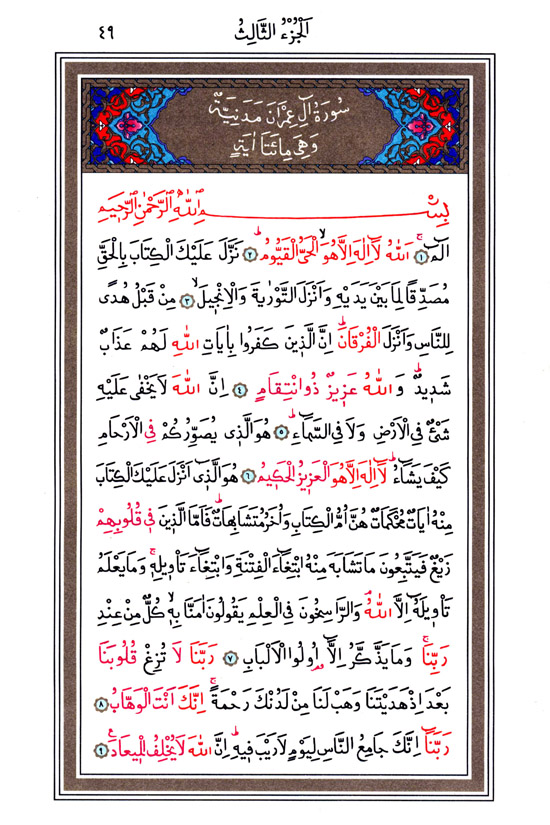 اَلْجُزْءُ الثَّالِثُ ٤٩
سُورَةُ اٰلِ عِمْرٰنَ مَدَنِيَّةٌ
وَهِيَ مِائَتَا اٰيَةٍ
بِسْمِ اللّٰهِ الرَّحْمٰنِ الرَّحِيمِ
الٓمٓ ﴿١﴾ اَللّٰهُ لَٓا اِلٰهَ اِلَّا هُوَۙ الْحَيُّ الْقَيُّومُۜ ﴿٢﴾ نَزَّلَ عَلَيْكَ الْكِتَابَ بِالْحَقِّ
مُصَدِّقًا لِمَا بَيْنَ يَدَيْهِ وَاَنْزَلَ التَّوْرٰيةَ وَالْاِنْجٖيلَۙ ﴿٣﴾ مِنْ قَبْلُ هُدًى
لِلنَّاسِ وَاَنْزَلَ الْفُرْقَانَۜ اِنَّ الَّذٖينَ كَفَرُوا بِاٰيَاتِ اللّٰهِ لَهُمْ عَذَابٌ
شَدٖيدٌۜ وَاللّٰهُ عَزٖيزٌ ذُو انْتِقَامٍ ﴿٤﴾ اِنَّ اللّٰهَ لَا يَخْفٰى عَلَيْهِ
شَيْءٌ فِي الْاَرْضِ وَلَا فِي السَّمَٓاءِۜ ﴿٥﴾ هُوَ الَّذٖي يُصَوِّرُكُمْ فِي الْاَرْحَامِ
كَيْفَ يَشَٓاءُۜ لَٓا اِلٰهَ اِلَّا هُوَ الْعَزٖيزُ الْحَكٖيمُ ﴿٦﴾ هُوَ الَّذٖٓي اَنْزَلَ عَلَيْكَ الْكِتَابَ
مِنْهُ اٰيَاتٌ مُحْكَمَاتٌ هُنَّ اُمُّ الْكِتَابِ وَاُخَرُ مُتَشَابِهَاتٌۜ فَاَمَّا الَّذٖينَ فٖي قُلُوبِهِمْ
زَيْغٌ فَيَتَّبِعُونَ مَا تَشَابَهَ مِنْهُ ابْتِغَٓاءَ الْفِتْنَةِ وَابْتِغَٓاءَ تَأْوٖيلِهٖۚ وَمَا يَعْلَمُ
تَأْوٖيلَهُٓ اِلَّا اللّٰهُۢ وَالرَّاسِخُونَ فِي الْعِلْمِ يَقُولُونَ اٰمَنَّا بِهٖۙ كُلٌّ مِنْ عِنْدِ
رَبِّنَاۚ وَمَا يَذَّكَّرُ اِلَّٓا اُو۬لُوا الْاَلْبَابِ ﴿٧﴾ رَبَّنَا لَا تُزِغْ قُلُوبَنَا
بَعْدَ اِذْ هَدَيْتَنَا وَهَبْ لَنَا مِنْ لَدُنْكَ رَحْمَةًۚ اِنَّكَ اَنْتَ الْوَهَّابُ ﴿٨﴾
رَبَّنَٓا اِنَّكَ جَامِعُ النَّاسِ لِيَوْمٍ لَا رَيْبَ فٖيهِۜ اِنَّ اللّٰهَ لَا يُخْلِفُ الْمٖيعَادَ۟ ﴿٩﴾